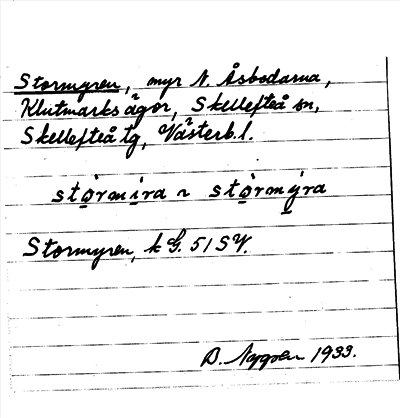 Stormyren, myr N. Åsbodarna,
Klutmarks ägor, Skellefteå sn,
Skellefteå tg, Västerb. l.
stò̱rmi̱ra ~ stò̱rmy̱ra
Stormyren, k G. 51 SV.
B. Nygren 1933.